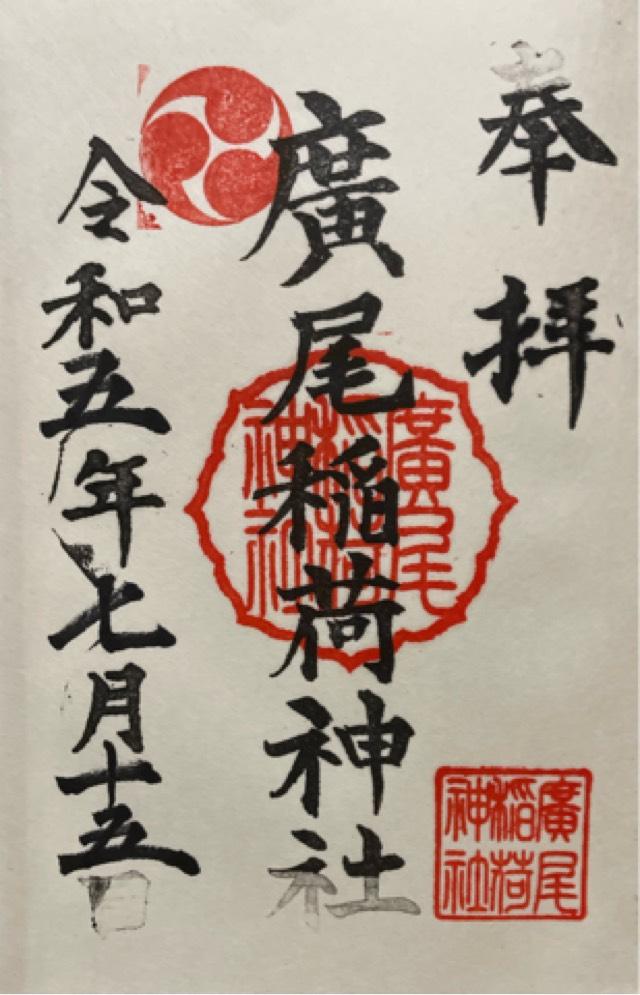 奉拝
廣尾稲荷神社
令和五年七月十五日
廣尾
稲荷
神社
廣尾
稲荷
神社